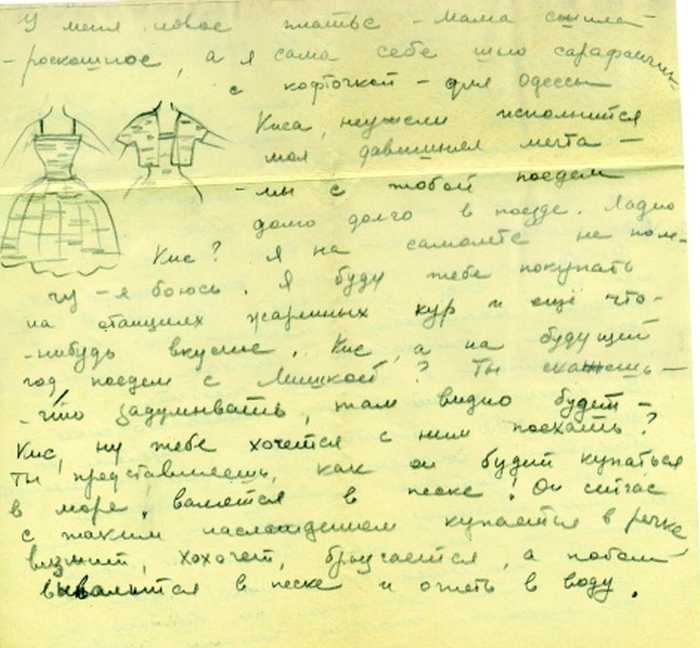 У меня новое платье - мама сшила -
- роскошное, а я сама себе шью сарафанчик
с кофточкой - для Одессы
Киса, неужели исполнится
моя давишняя мечта -
- мы с тобой поедем
долго долго в поезде. Ладно
Кис? Я на самолете не поле-
чу - я боюсь. Я буду тебе покупать
на станциях жареных кур и ещё что-
-нибудь вкусное. Кис, а на будущий
год поедем с Мишкой? Ты скажешь -
- что задумывать, там видно будет -
Кис, ну тебе хочется с ним поехать?
Ты представляешь, как он будет купаться
в море, валятся в песке! Он сейчас
с таким наслаждением купается в речке,
визжит, хохочет, брызгается, а потом
вываляется в песке и опять в воду.